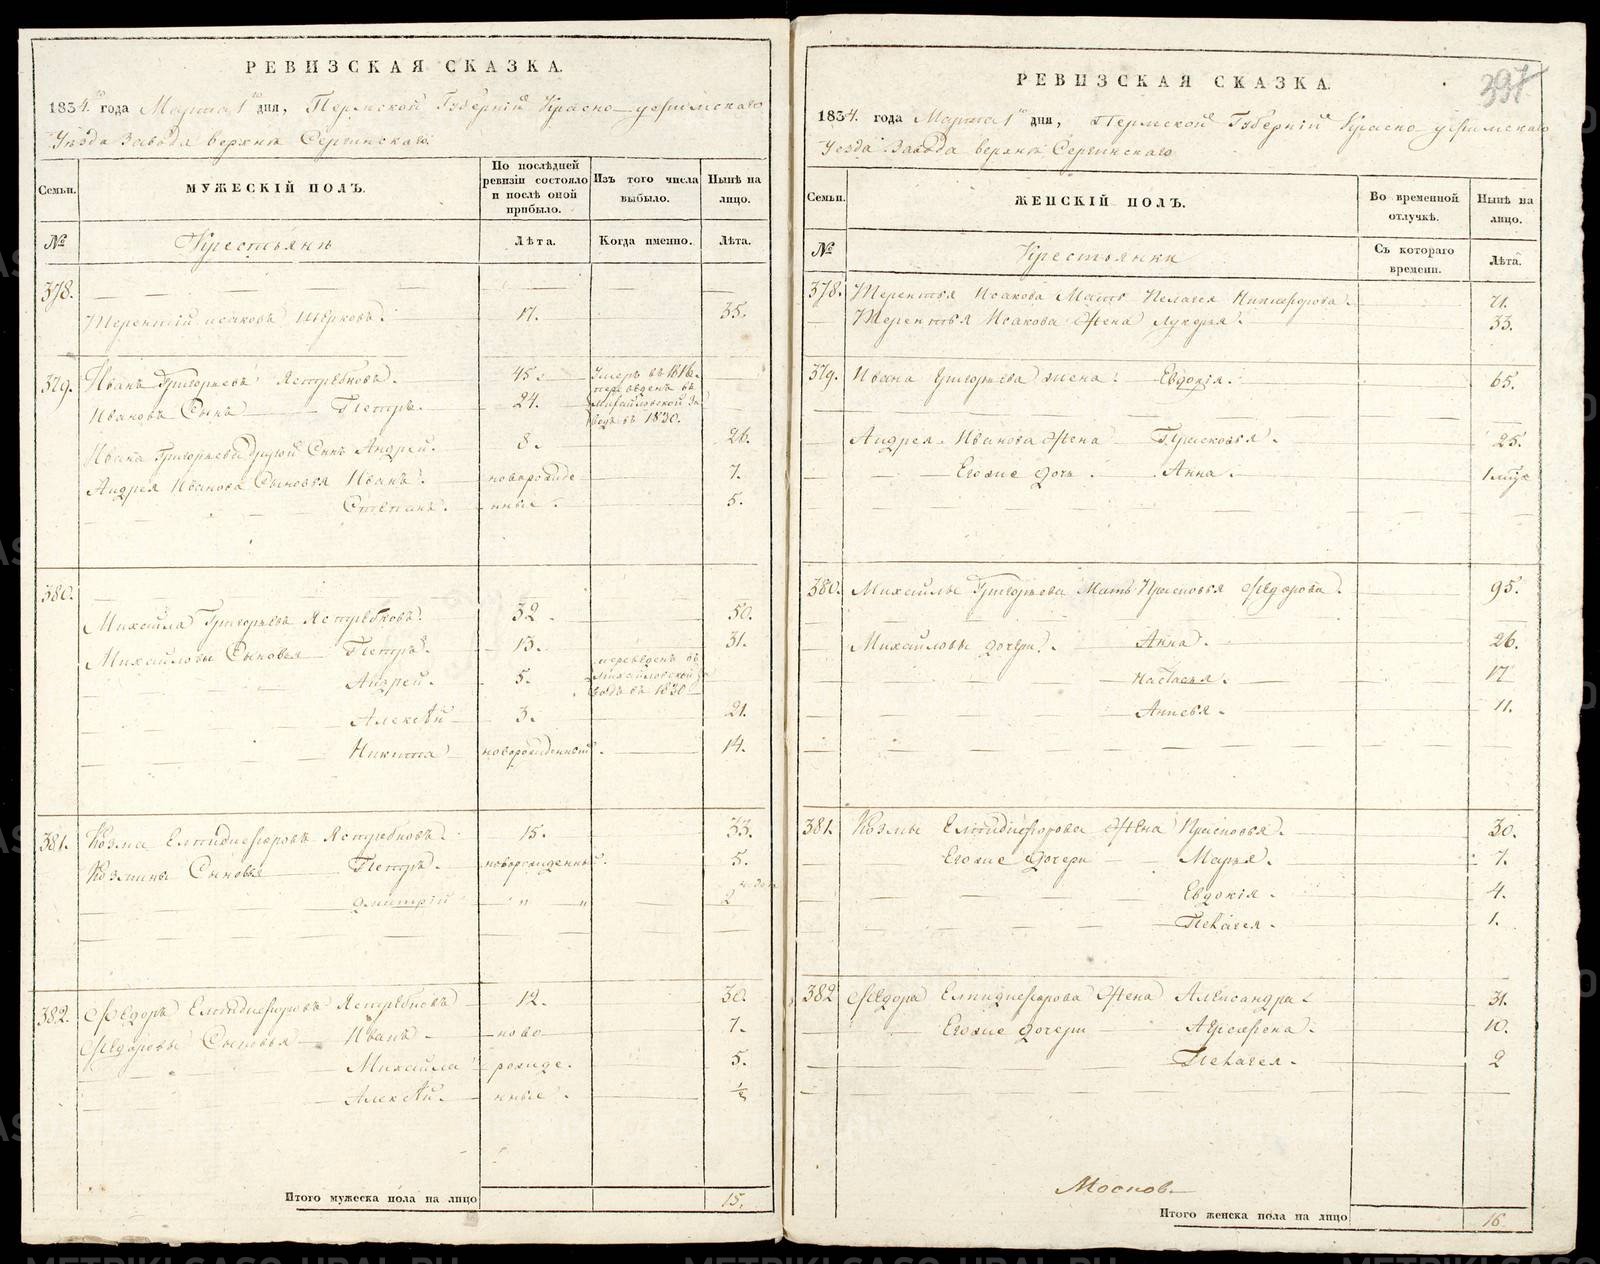 РЕВИЗСКАЯ СКАЗКА.
1834.го года Марта 1го дня, Пермской Губернiи Красно-уфимскаго
Уѣзда Завода верхнѣ Сергинскаго.
Семьи.
МУЖЕСКIЙ ПОЛЪ.
По послѣдней ревизiи состояло и послѣ оной прибыло.
Изъ того числа выбыло.
Нынѣ на лицо.
№
Крестьянѣ
Лѣта.
Когда именно.
Лѣта.
378.
Терентiй Исаковъ 17. 35.
379. Иванъ Григорьевъ Ястребковъ. 45. Умеръ въ 1816.
Ивановъ Сынъ Петръ. 24. переведенъ въ Михайловской Заводъ въ 1830.
Ивана Григорьева Другой Сынъ Андрей. 8. 26.
Андрея Иванова Сыновья Иванъ. новорожде 7.
Степанъ. нные. 5.
380.
Михайла Григорьевъ Ястребковъ. 32. 50.
Михайловы Сыновья Петръ. 13. 31.
Андрей. 5. переведенъ въ Михайловской Заводъ въ 1830
Алексѣй 3. 21.
Никита новорожденный. 14.
381. Козма Елпидифоровъ Ястребковъ. 15. 33.
Козмины Сыновья Петръ. новорожденный. 5.
Дмитрiй " " 2
382. Ѳедоръ Елпидифоровъ Ястребковъ 12. 30.
Ѳедоровы Сыновья Иванъ ново 7.
Михайла рожде. 5.
Алексѣй. нные. ½
Итого мужеска пола на лицо 15.
РЕВИЗСКАЯ СКАЗКА.
391
1834. года Марта 1го дня, Пермской Губернiи Красно уфимскаго
Уезда Завода верхнѣ Сергинскаго
Семьи.
ЖЕНСКIЙ ПОЛЪ.
Во временной отлучкѣ.
Нынѣ на лицо.
№
Крестьянки
Съ котораго времени.
Лѣта.
378. Терентья Исакова Мать Пелагея Никифорова. 71.
Терентья Исакова Жена Лукерья. 33.
379. Ивана Григорьева жена. Евдокiя. 65.
Андрея Иванова Жена Прасковья. 25.
Егоже дочь. Анна. 1
380. Михайлы Григорьева Мать Прасковья Ѳедорова. 95.
Михайловы дочери. Анна. 26.
Настасья. 17
Анисья. 11.
381. Козмы Елпидифорова Жена Прасковья. 30.
Егоже дочери Марья. 7.
Евдокiя. 4.
Пелагея. 1.
382 Ѳедора Елпидифорова Жена Александра 31.
Егоже дочери Аграфена. 10.
Пелагея. 2
Итого женска пола на лицо 16.